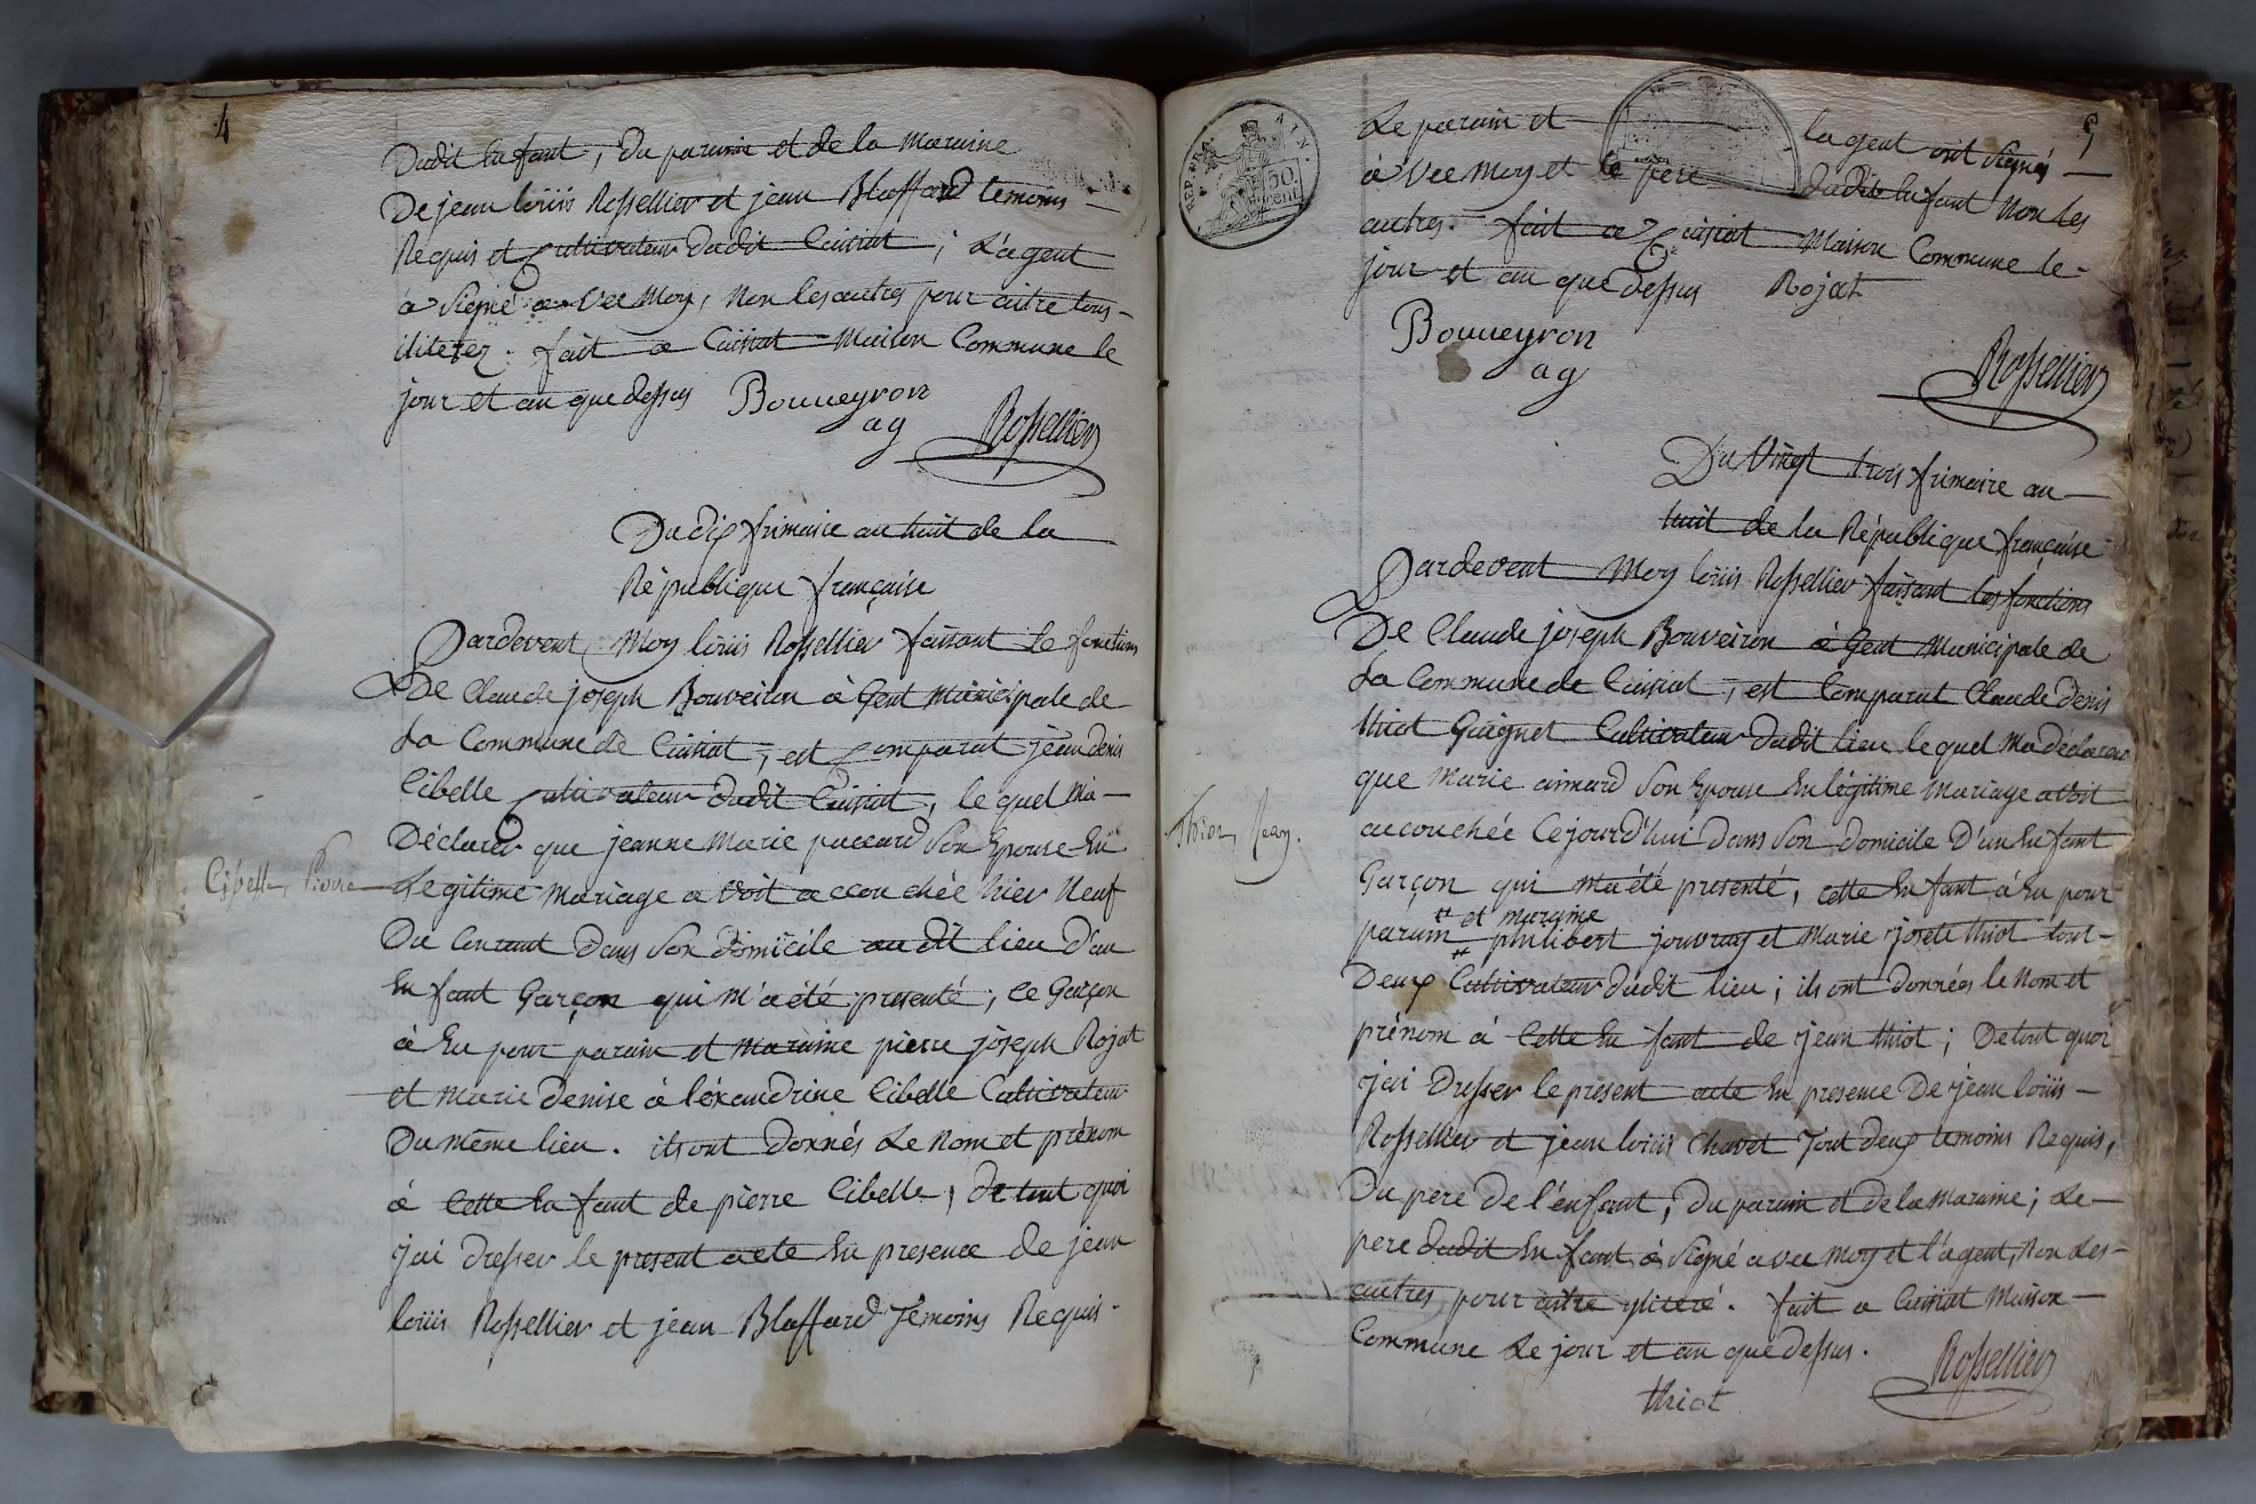 4
Dudit Enfant, du parain et de la Maraine
De jean loüis Rossellier et jean Blaffard temoins
Requis et Cultivateur dudit Cuisiat; L'agent
a Signé avec Moy, Non les autres pour aitre tous
iliterez. fait a Cuisiat Maison Commune le
jour et an que dessus Bouueyron
ag Rossellier
Du dix frimaire an huit de la
République française
Pardevent Moy loüis Rossellier faisant le fonctions
De Claude joseph Bouveiron àGent Municipale de
La Commune de Cuisiat, est Comparut jean denis
Cibelle Cultivateur dudit Cuisiat, le quel Ma
Déclarer que jeanne Marie paccard Son Epouse En
Cibelle, Pierre
Legitime Mariage avoit accouchée hier Neuf
Du Courant Dans Son domicile audit lieu D'un
Enfant Garçon qui M'a été presenté; Ce Garçon
à Eu pour parain et Maraine pierre joseph Rojat
et Marie denise àléxandrine Cibelle Cultivateur
Du même lieu. ils ont Donnés Le Nom et prénom
à Cette Enfant de pierre Cibelle, de tout quoi
j'ai dresser le present acte En presence de jean
loüis Rossellier et jean Blaffard Temoins Requis
5
REP. FRA.
50
cent.
Le parain et lagent ont Signés
àVec Moy et le pere dudit Enfant Non les
autres. fait a Cuisiat Maison Commune le
jour et an que dessus Rojat
Bouueyron
ag
Rossellier
Du Vingt trois frimaire an
huit de la République française
Pardevent Moy loüis Rossellier faisant les fonctions
De Claude joseph Bouveiron àGent Municipale de
La Commune de Cuisiat, est Comparut Claude denis
thiot Guignet Cultivateur dudit lieu lequel Ma déclarer
que Marie aimard Son Epouse En légitime Mariage avoit
Thiot, Jean.
accouchée Cejourd'hui dans Son domicile D'un Enfant
Garçon qui Ma été presenté, Cette Enfant à Eu pour
et maraine
parain philibert jouvray et Marie josete thiot tout
Deux Cultivateur dudit lieu; ils ont données le Nom et
prénom à Cette Enfant de jean thiot; De tout quoi
j'ai Dresser le present acte En presence De jean loüis
Rossellier et jean loüis Chavet Tout deux temoins Requis,
Du pere De l'enfant, Du parain et de la Maraine; Le
pere dudit Enfant à Signé avec Moy et l'agent, Non Les
autres pour aitre yliteré. fait a Cuisiat Maison
Commune Le jour et an que dessus.
Rossellier
thiot